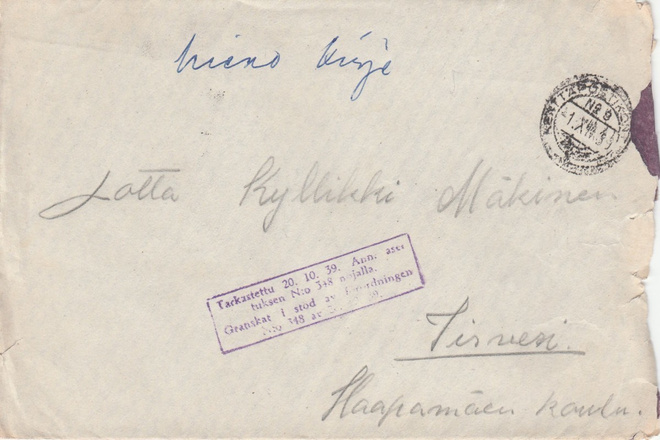 kirje
KENTTÄPOSTIKONTTORI
No 9
Lotta Kyllikki Mäkinen
Tarkastettu 20. 10. 39. Ann. ase-
tuksen N:o 348 nojalla.
Granskat i stöd av förordningen
N:o 348 av 39.
Tirvesi.
Haapamäen koulu.